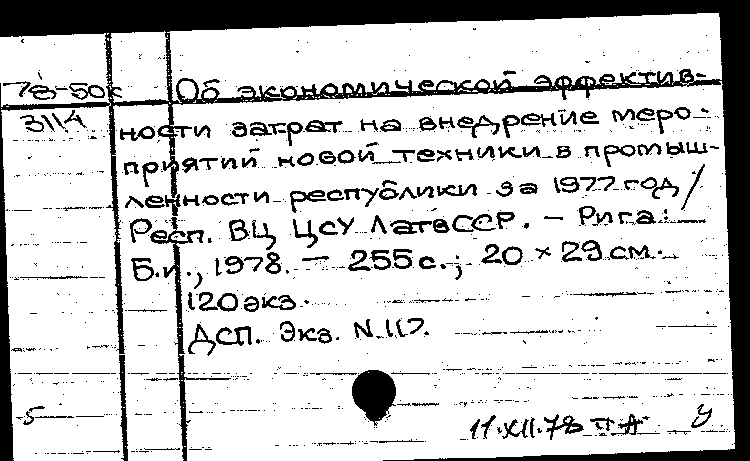 78-50к Об экономической эффектив-
3114 ности затрат на внедрение меро-
приятий новой техники в промыш-
ленности республики за 1977 год /
Респ. ВЦ ЦСУ ЛатвССР. - Рига:
Б.и., 1978. - 255 с.; 20 × 29 см.
120 экз.
ДСП. Экз. N 117.
5 11.XII.78 У